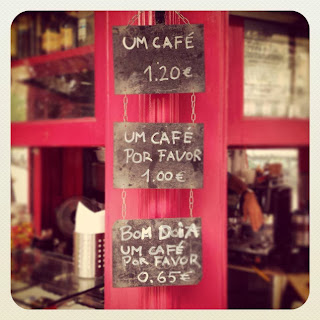 UM CAFÉ
1.20€
UM CAFÉ
POR FAVOR
1.00€
BOM DOIA
UM CAFÉ
POR FAVOR
0.65€